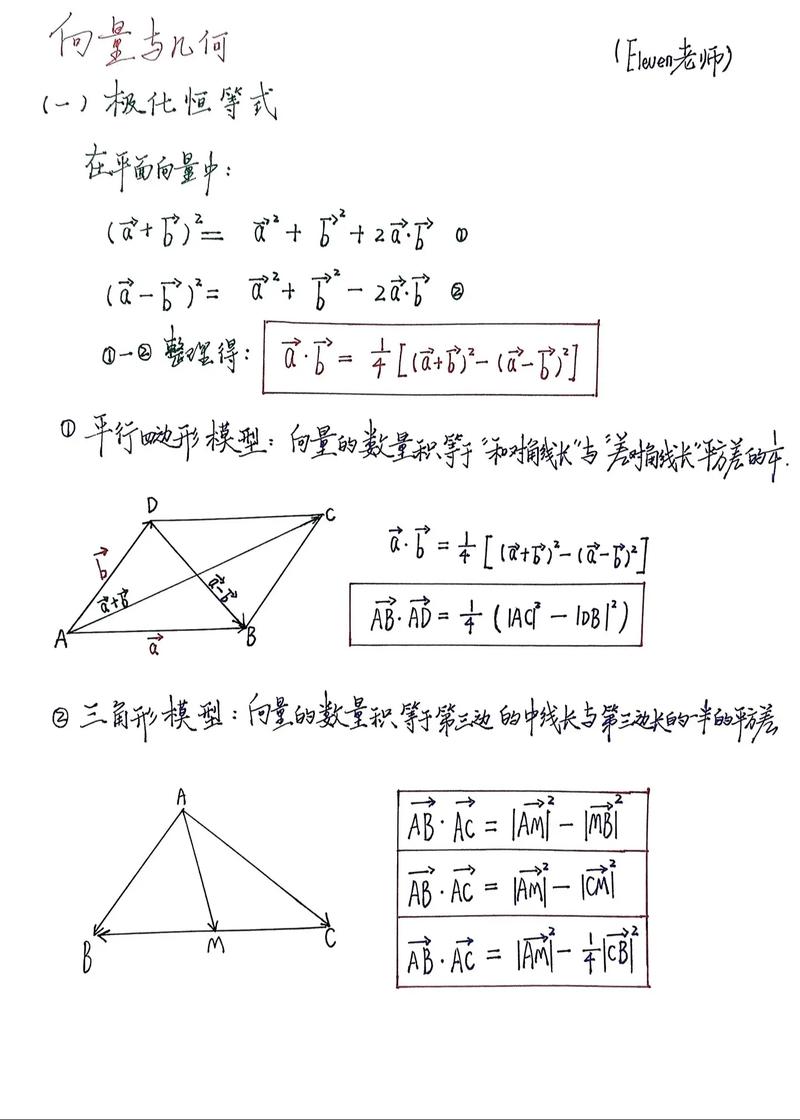 向量与几何
(Eleven老师)
(一) 极化恒等式
在平面向量中:
(a⃗+b⃗)²= a⃗²+ b⃗²+2a⃗·b⃗ ①
(a⃗-b⃗)²= a⃗²+ b⃗²-2a⃗·b⃗ ②
①-② 整理得: a⃗·b⃗ = 1/4[(a⃗+b⃗)²-(a⃗-b⃗)²]
① 平行四边形模型: 向量的数量积等于“和对角线长”与“差对角线长”平方差的1/4.
D
C
b⃗
a⃗+b⃗
a⃗-b⃗
A
a⃗
B
a⃗·b⃗ = 1/4[(a⃗+b⃗)²-(a⃗-b⃗)²]
AB⃗·AD⃗ = 1/4(|AC|²-|DB|²)
② 三角形模型: 向量的数量积等于第三边的中线长与第三边长的一半的平方差
A
B
M
C
AB⃗·AC⃗ = |AM⃗|²-|MB⃗|²
AB⃗·AC⃗ = |AM⃗|²-|CM⃗|²
AB⃗·AC⃗ = |AM⃗|²-1/4|CB⃗|²